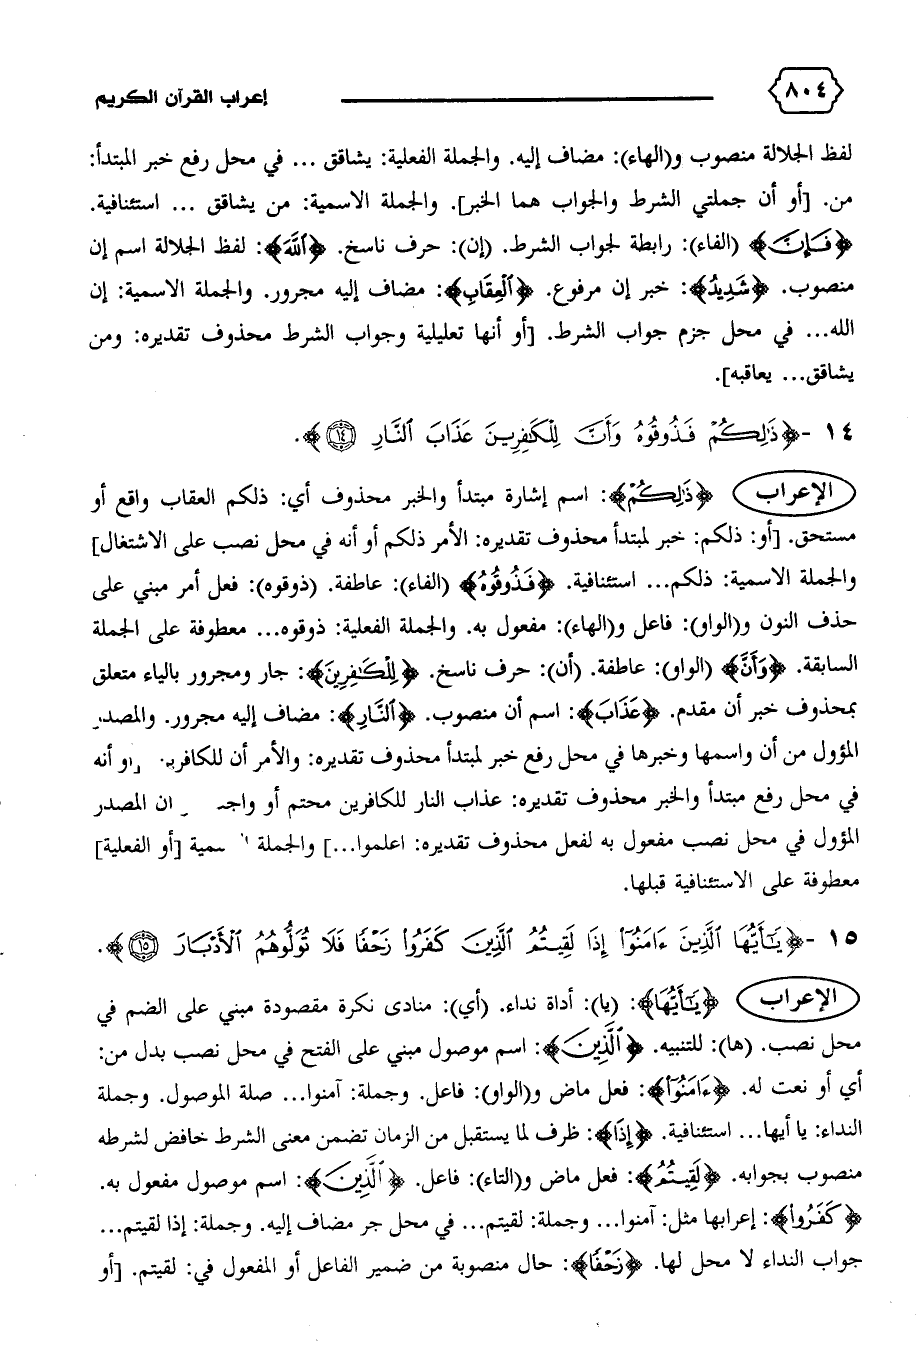 ٨٠٤ إعراب القرآن الكريم
لفظ الجلالة منصوب و(الهاء): مضاف إليه. والجملة الفعلية: يشاقق ... في محل رفع خبر المبتدأ:
من. [أو أن جملتي الشرط والجواب هما الخبر]. والجملة الاسمية: من يشاقق ... استئنافية.
﴿فَإِنَّ﴾ (الفاء): رابطة لجواب الشرط. (إن): حرف ناسخ. ﴿اللَّهَ﴾: لفظ الجلالة اسم إن
منصوب. ﴿شَدِيدُ﴾: خبر إن مرفوع. ﴿الْعِقَابِ﴾: مضاف إليه مجرور. والجملة الاسمية: إن
الله... في محل جزم جواب الشرط. [أو أنها تعليلية وجواب الشرط محذوف تقديره: ومن
يشاقق... يعاقبه].
١٤ -﴿ذَٰلِكُمْ فَذُوقُوهُ وَأَنَّ لِلْكَٰفِرِينَ عَذَابَ النَّارِ ١٤﴾.
الإعراب ﴿ذَٰلِكُمْ﴾: اسم إشارة مبتدأ والخبر محذوف أي: ذلكم العقاب واقع أو
مستحق. [أو: ذلكم: خبر لمبتدأ محذوف تقديره: الأمر ذلكم أو أنه في محل نصب على الاشتغال]
والجملة الاسمية: ذلكم... استئنافية. ﴿فَذُوقُوهُ﴾ (الفاء): عاطفة. (ذوقوه): فعل أمر مبني على
حذف النون و(الواو): فاعل و(الهاء): مفعول به. والجملة الفعلية: ذوقوه... معطوفة على الجملة
السابقة. ﴿وَأَنَّ﴾ (الواو): عاطفة. (أن): حرف ناسخ. ﴿لِلْكَٰفِرِينَ﴾: جار ومجرور بالياء متعلق
بمحذوف خبر أن مقدم. ﴿عَذَابَ﴾: اسم أن منصوب. ﴿النَّارِ﴾: مضاف إليه مجرور. والمصدر
المؤول من أن واسمها وخبرها في محل رفع خبر لمبتدأ محذوف تقديره: والأمر أن أو أنه
في محل رفع مبتدأ والخبر محذوف تقديره: عذاب النار للكافرين محتم أو المصدر
المؤول في محل نصب مفعول به لفعل محذوف تقديره: اعلموا...] والجملة [أو الفعلية]
معطوفة على الاستئنافية قبلها.
١٥ -﴿يَٰٓأَيُّهَا الَّذِينَ ءَامَنُوٓا إِذَا لَقِيتُمُ الَّذِينَ كَفَرُوا زَحْفًا فَلَا تُوَلُّوهُمُ الْأَدْبَارَ ١٥﴾.
الإعراب ﴿يَٰٓأَيُّهَا﴾: (يا): أداة نداء. (أي): منادى نكرة مقصودة مبني على الضم في
محل نصب. (ها): للتنبيه. ﴿الَّذِينَ﴾: اسم موصول مبني على الفتح في محل نصب بدل من:
أي أو نعت له. ﴿ءَامَنُوٓا﴾: فعل ماض و(الواو): فاعل. وجملة: آمنوا... صلة الموصول. وجملة
النداء: يا أيها... استئنافية. ﴿إِذَا﴾: ظرف لما يستقبل من الزمان تضمن معنى الشرط خافض لشرطه
منصوب بجوابه. ﴿لَقِيتُمُ﴾: فعل ماض و(التاء): فاعل. ﴿الَّذِينَ﴾: اسم موصول مفعول به.
﴿كَفَرُوا﴾: إعرابها مثل: آمنوا... وجملة: لقيتم... في محل جر مضاف إليه. وجملة: إذا لقيتم...
جواب النداء لا محل لها. ﴿زَحْفًا﴾: حال منصوبة من ضمير الفاعل أو المفعول في: لقيتم. [أو